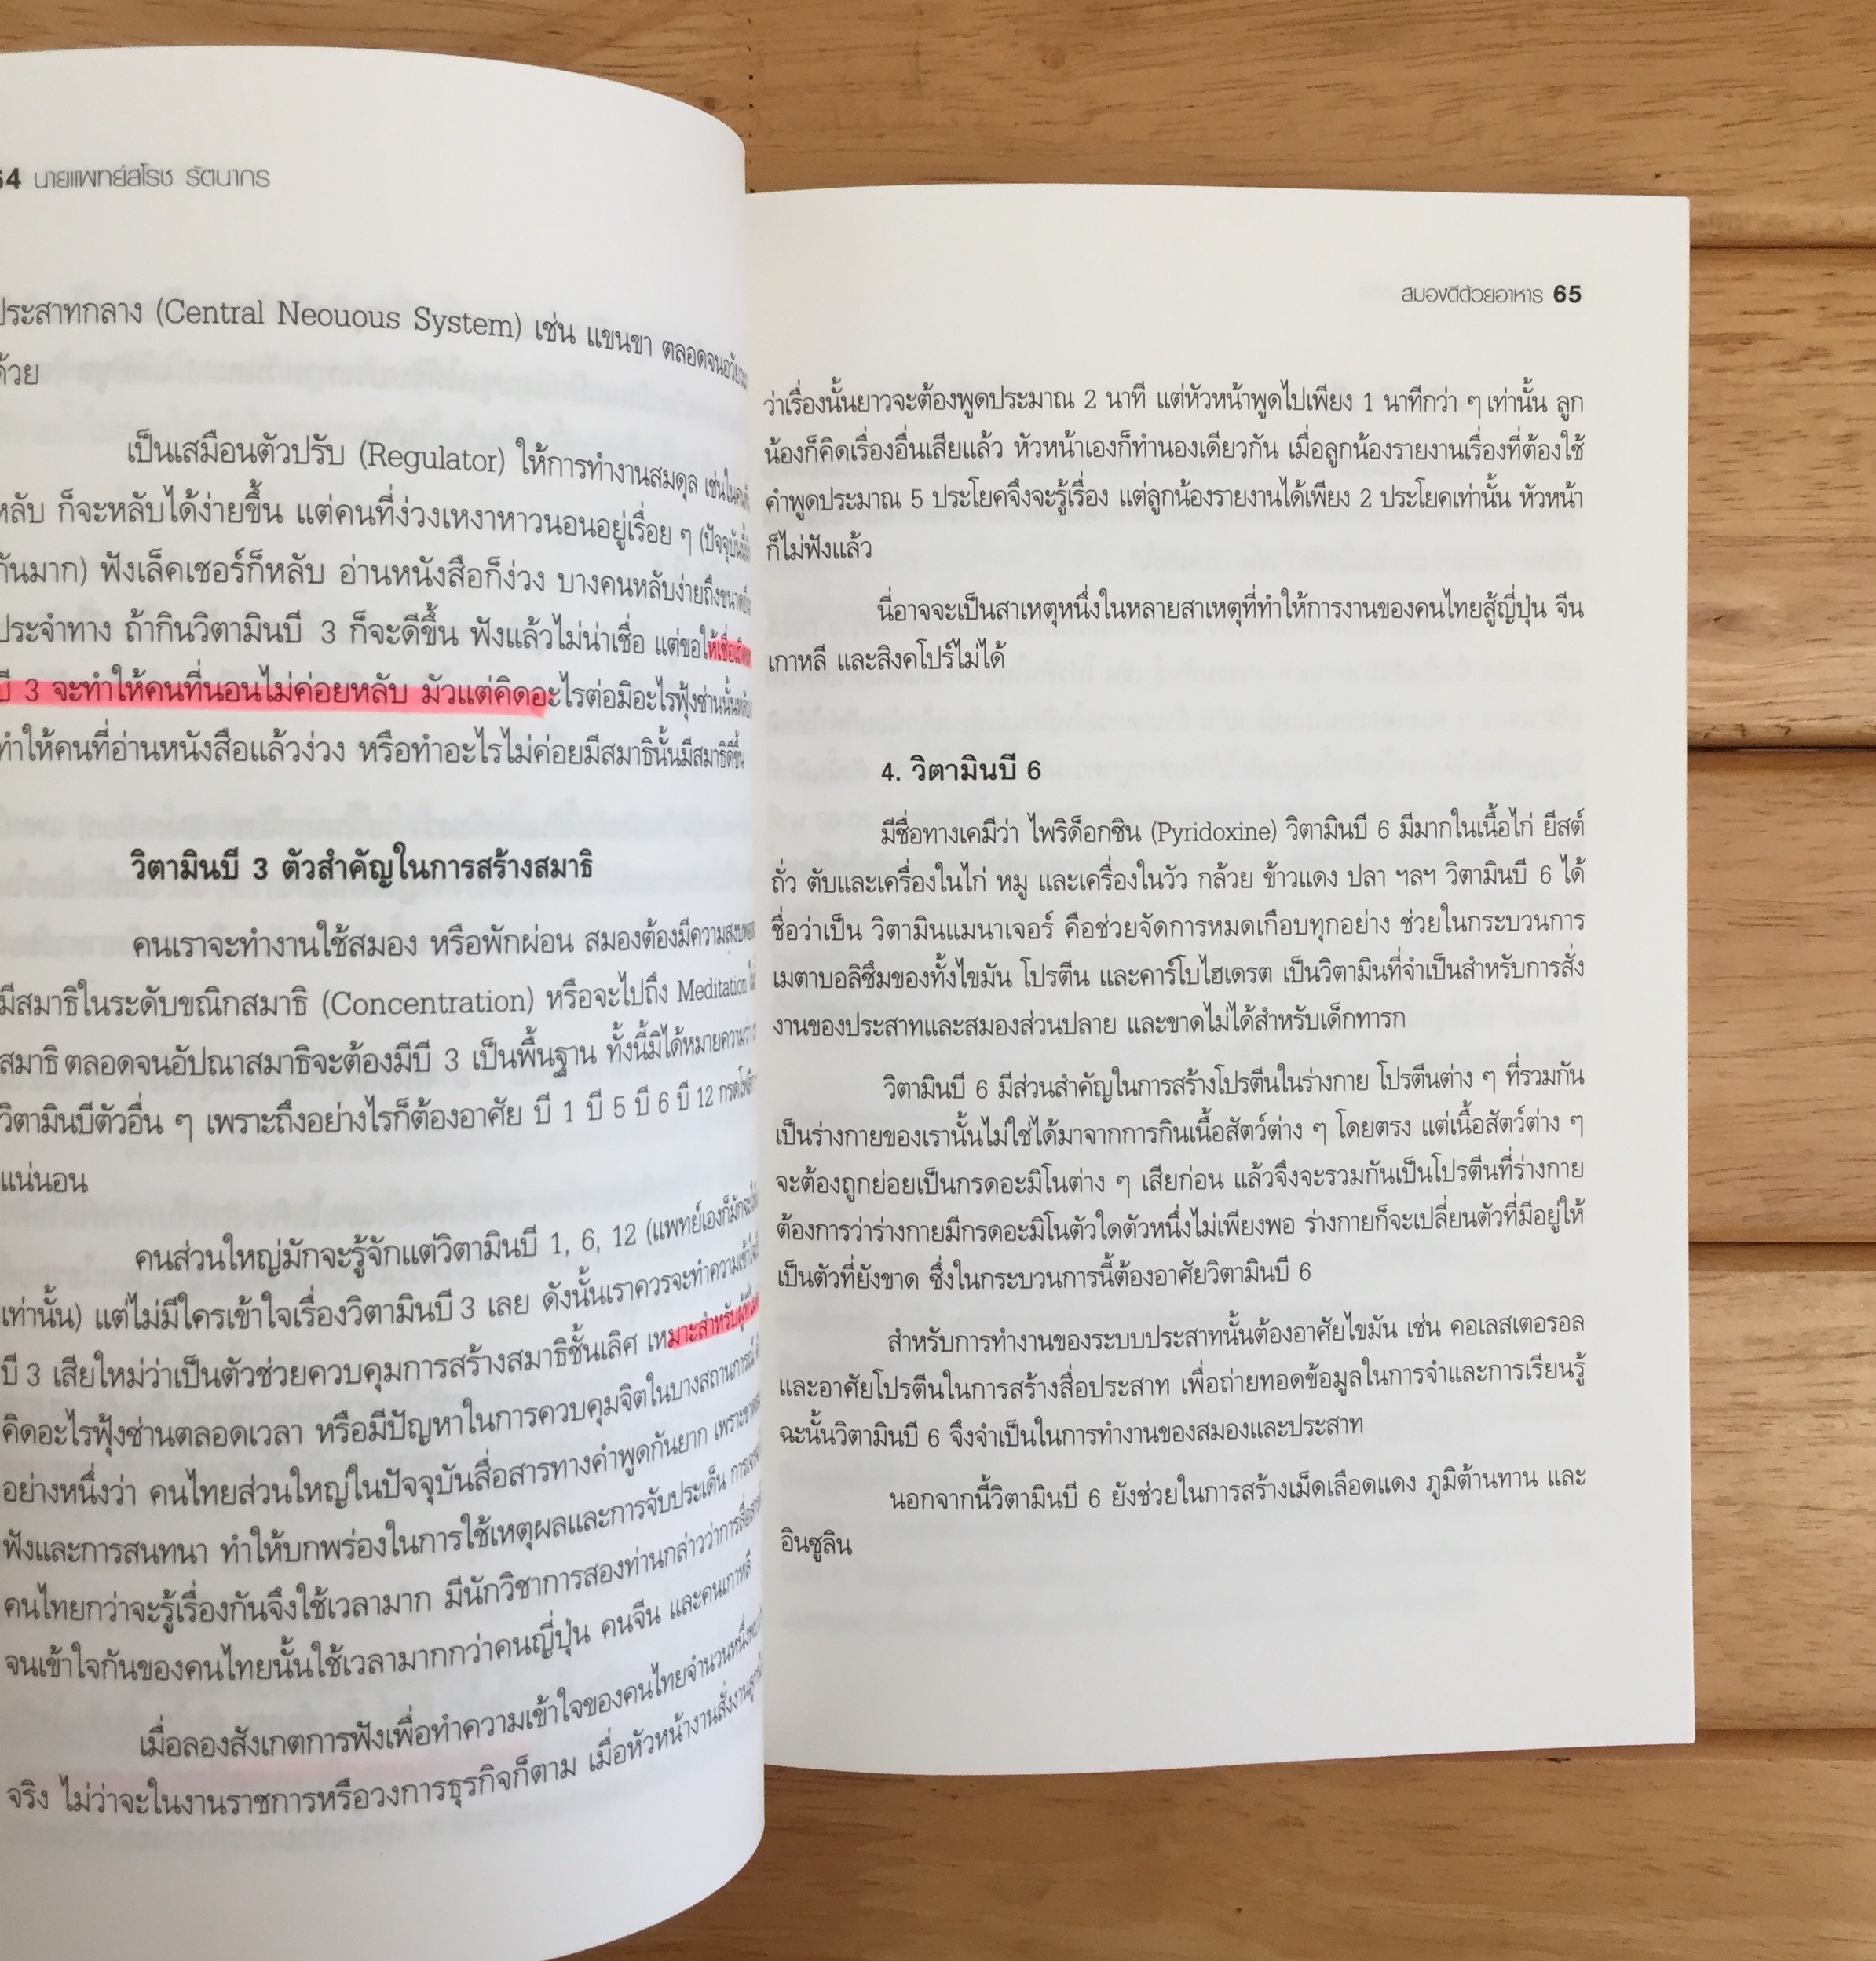 64 นายแพทย์สโรช รัตนากร
ประสาทกลาง (Central Neouous System) เช่น แขนขา ตลอดจนอวัยวะ
ด้วย
เป็นเสมือนตัวปรับ (Regulator) ให้การทำงานสมดุล เช่นในคนที่
หลับ ก็จะหลับได้ง่ายขึ้น แต่คนที่ง่วงเหงาหาวนอนอยู่เรื่อย ๆ (ปัจจุบันนี้
กันมาก) ฟังเล็คเชอร์ก็หลับ อ่านหนังสือก็ง่วง บางคนหลับง่ายถึงขนาด
ประจำทาง ถ้ากินวิตามินบี 3 ก็จะดีขึ้น ฟังแล้วไม่น่าเชื่อ แต่ขอให้เชื่อเถิด
บี 3 จะทำให้คนที่นอนไม่ค่อยหลับ มัวแต่คิดอะไรต่อมิอะไรฟุ้งซ่านนั้นหลับ
ทำให้คนที่อ่านหนังสือแล้วง่วง หรือทำอะไรไม่ค่อยมีสมาธินั้นมีสมาธิดีขึ้น
วิตามินบี 3 ตัวสำคัญในการสร้างสมาธิ
คนเราจะทำงานใช้สมอง หรือพักผ่อน สมองต้องมีความสงบ
มีสมาธิในระดับขณิกสมาธิ (Concentration) หรือจะไปถึง Meditation
สมาธิ ตลอดจนอัปณาสมาธิจะต้องมีบี 3 เป็นพื้นฐาน ทั้งนี้มิได้หมายความว่า
วิตามินบีตัวอื่น ๆ เพราะถึงอย่างไรก็ต้องอาศัย บี 1 บี 5 บี 6 บี 12 กรดโฟลิก
แน่นอน
คนส่วนใหญ่มักจะรู้จักแต่วิตามินบี 1, 6, 12 (แพทย์เองก็มักจะ
เท่านั้น) แต่ไม่มีใครเข้าใจเรื่องวิตามินบี 3 เลย ดังนั้นเราควรจะทำความเข้าใจ
บี 3 เสียใหม่ว่าเป็นตัวช่วยควบคุมการสร้างสมาธิชั้นเลิศ เหมาะสำหรับผู้ที่
คิดอะไรฟุ้งซ่านตลอดเวลา หรือมีปัญหาในการควบคุมจิตในบางสถานการณ์
อย่างหนึ่งว่า คนไทยส่วนใหญ่ในปัจจุบันสื่อสารทางคำพูดกันยาก เพราะขาด
ฟังและการสนทนา ทำให้บกพร่องในการใช้เหตุผลและการจับประเด็น การ
คนไทยกว่าจะรู้เรื่องกันจึงใช้เวลามาก มีนักวิชาการสองท่านกล่าวว่าการสื่อสาร
จนเข้าใจกันของคนไทยนั้นใช้เวลามากกว่าคนญี่ปุ่น คนจีน และคนเกาหลี
เมื่อลองสังเกตการฟังเพื่อทำความเข้าใจของคนไทยจำนวนหนึ่ง
จริง ไม่ว่าจะในงานราชการหรือวงการธุรกิจก็ตาม เมื่อหัวหน้างานสั่งงาน
สมองดีด้วยอาหาร 65
ว่าเรื่องนั้นยาวจะต้องพูดประมาณ 2 นาที แต่หัวหน้าพูดไปเพียง 1 นาทีกว่า ๆ เท่านั้น ลูก
น้องก็คิดเรื่องอื่นเสียแล้ว หัวหน้าเองก็ทำนองเดียวกัน เมื่อลูกน้องรายงานเรื่องที่ต้องใช้
คำพูดประมาณ 5 ประโยคจึงจะรู้เรื่อง แต่ลูกน้องรายงานได้เพียง 2 ประโยคเท่านั้น หัวหน้า
ก็ไม่ฟังแล้ว
นี่อาจจะเป็นสาเหตุหนึ่งในหลายสาเหตุที่ทำให้การงานของคนไทยสู้ญี่ปุ่น จีน
เกาหลี และสิงคโปร์ไม่ได้
4. วิตามินบี 6
มีชื่อทางเคมีว่า ไพริด็อกซิน (Pyridoxine) วิตามินบี 6 มีมากในเนื้อไก่ ยีสต์
ถั่ว ตับและเครื่องในไก่ หมู และเครื่องในวัว กล้วย ข้าวแดง ปลา ฯลฯ วิตามินบี 6 ได้
ชื่อว่าเป็น วิตามินแมนาเจอร์ คือช่วยจัดการหมดเกือบทุกอย่าง ช่วยในกระบวนการ
เมตาบอลิซึมของทั้งไขมัน โปรตีน และคาร์โบไฮเดรต เป็นวิตามินที่จำเป็นสำหรับการสั่ง
งานของประสาทและสมองส่วนปลาย และขาดไม่ได้สำหรับเด็กทารก
วิตามินบี 6 มีส่วนสำคัญในการสร้างโปรตีนในร่างกาย โปรตีนต่าง ๆ ที่รวมกัน
เป็นร่างกายของเรานั้นไม่ใช่ได้มาจากการกินเนื้อสัตว์ต่าง ๆ โดยตรง แต่เนื้อสัตว์ต่าง ๆ
จะต้องถูกย่อยเป็นกรดอะมิโนต่าง ๆ เสียก่อน แล้วจึงจะรวมกันเป็นโปรตีนที่ร่างกาย
ต้องการว่าร่างกายมีกรดอะมิโนตัวใดตัวหนึ่งไม่เพียงพอ ร่างกายก็จะเปลี่ยนตัวที่มีอยู่ให้
เป็นตัวที่ยังขาด ซึ่งในกระบวนการนี้ต้องอาศัยวิตามินบี 6
สำหรับการทำงานของระบบประสาทนั้นต้องอาศัยไขมัน เช่น คอเลสเตอรอล
และอาศัยโปรตีนในการสร้างสื่อประสาท เพื่อถ่ายทอดข้อมูลในการจำและการเรียนรู้
ฉะนั้นวิตามินบี 6 จึงจำเป็นในการทำงานของสมองและประสาท
นอกจากนี้วิตามินบี 6 ยังช่วยในการสร้างเม็ดเลือดแดง ภูมิต้านทาน และ
อินซูลิน